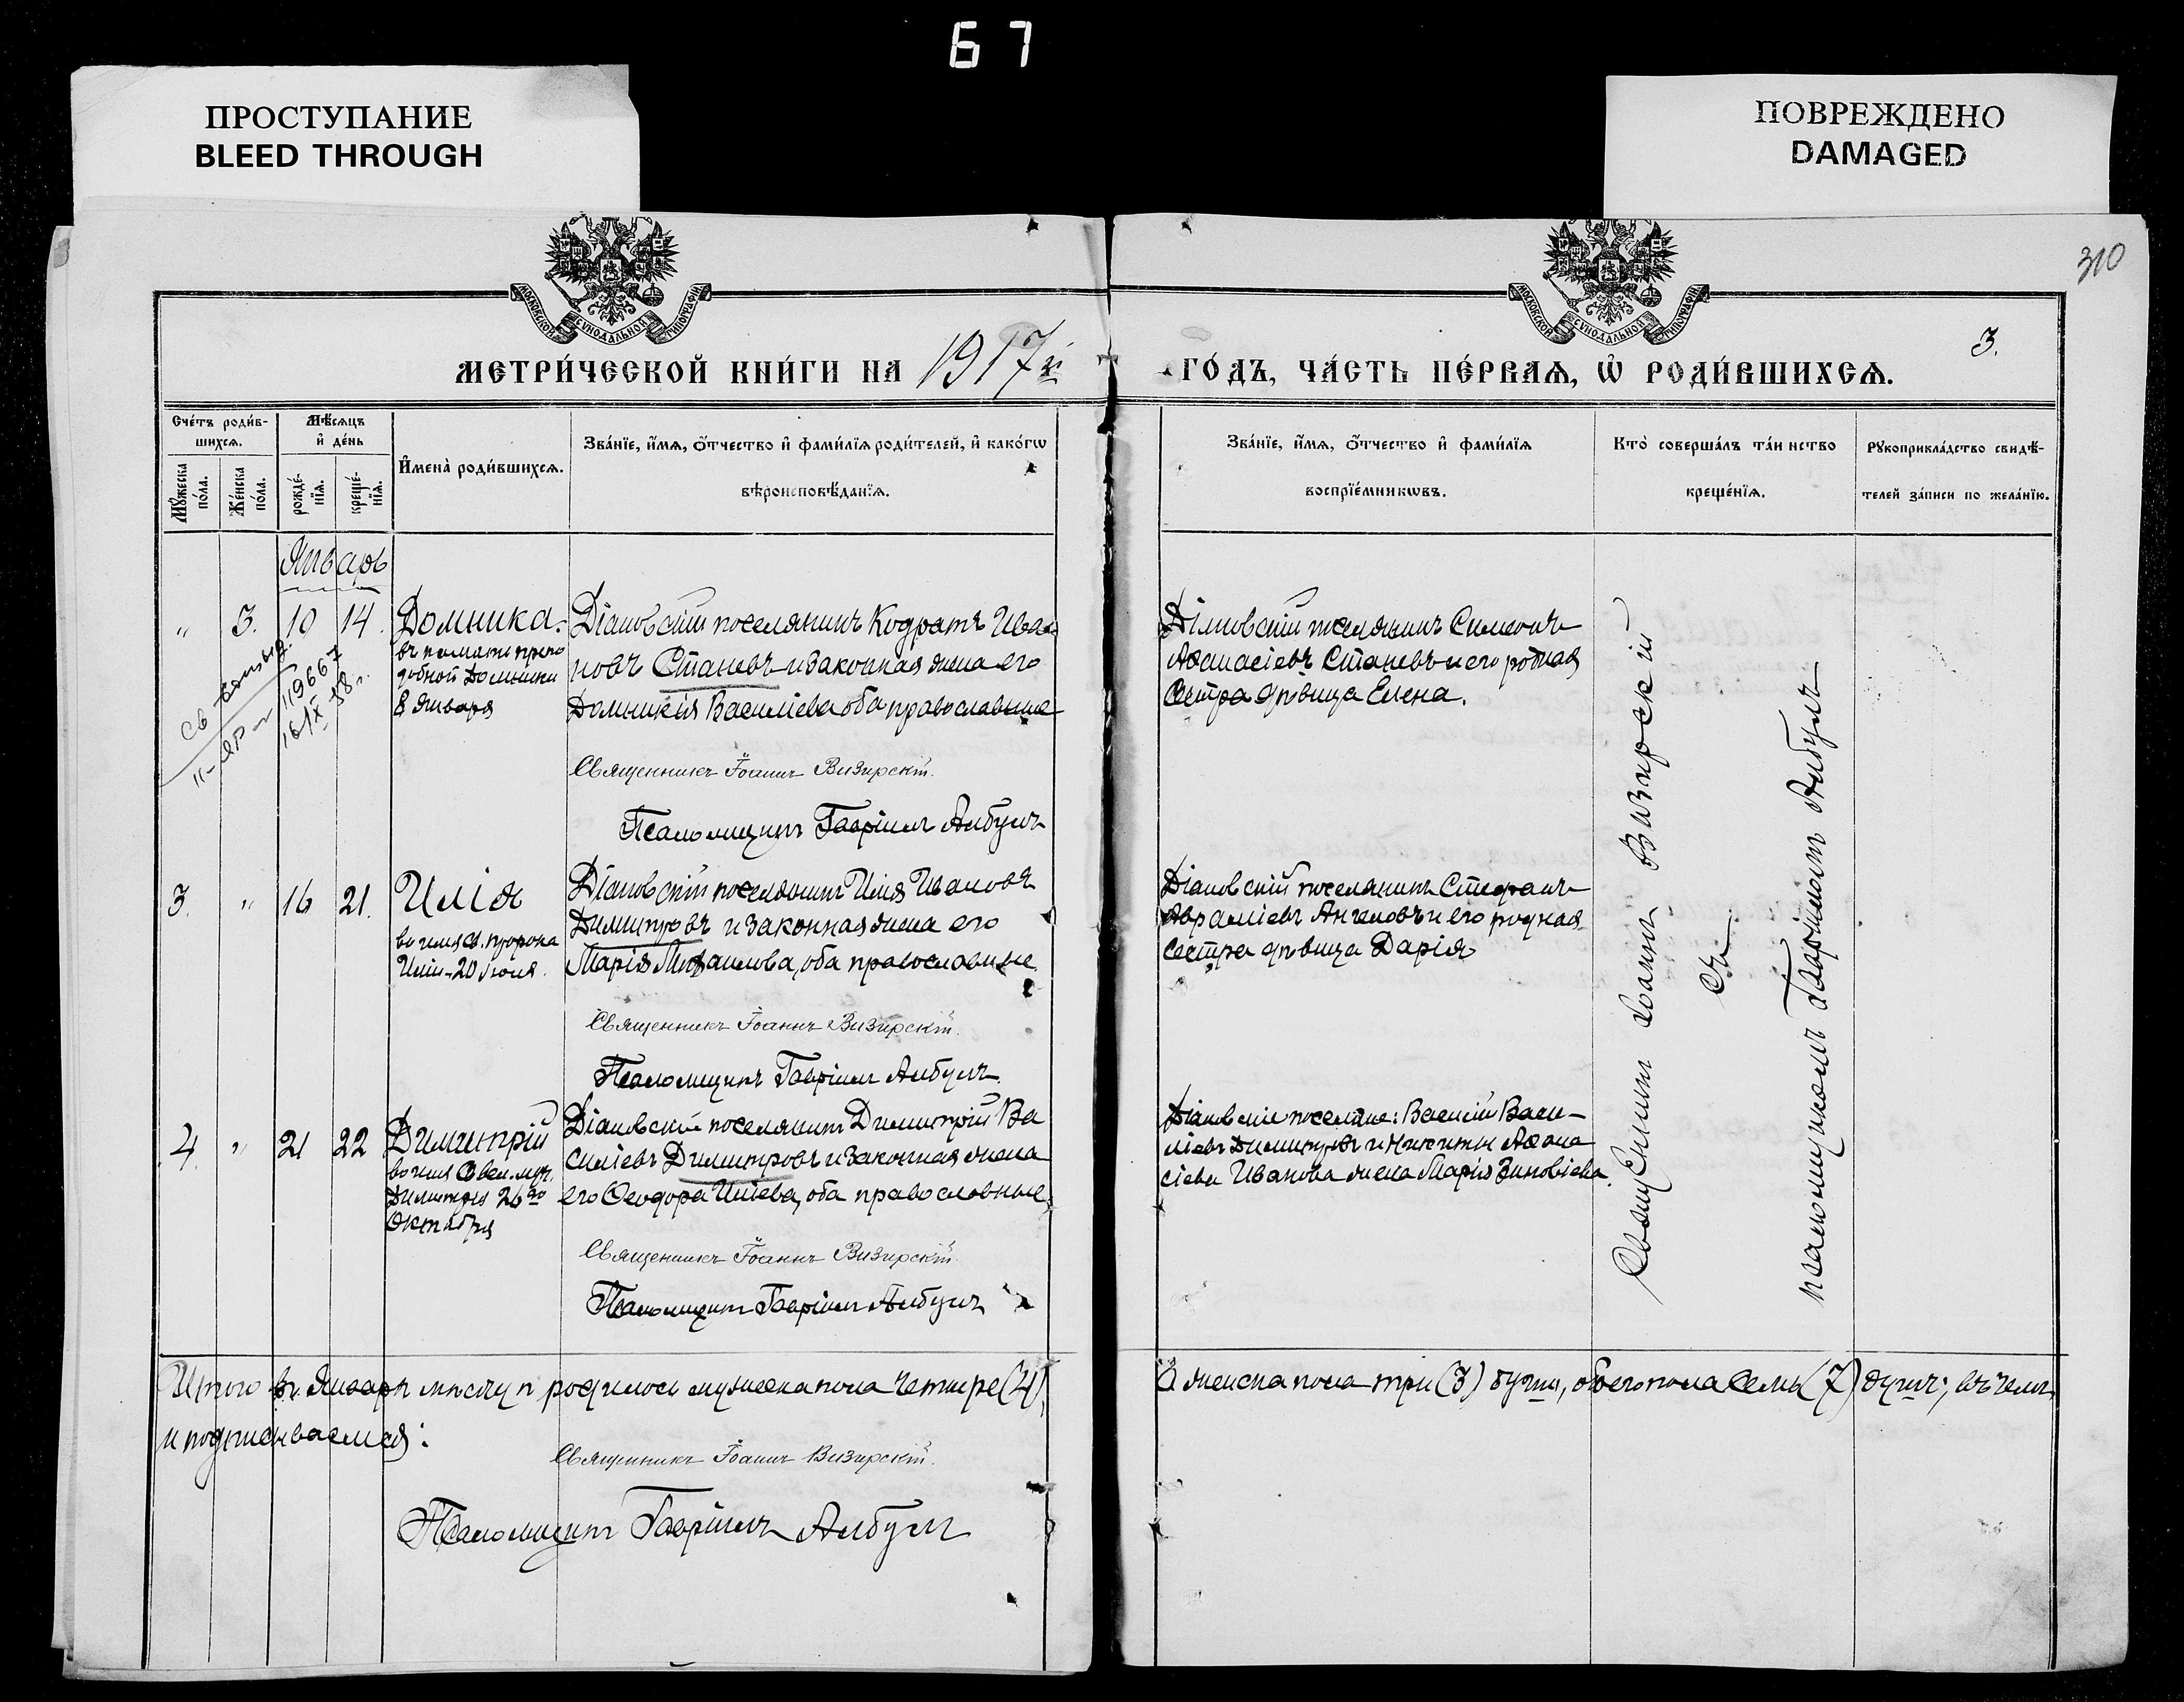 67
ПРОСТУПАНИЕ
BLEED THROUGH
ПОВРЕЖДЕНО
DAMAGED
310
МОСКОВСКОЙ СѴНОДАЛЬНОЙ ТИПОГРАФІИ
МОСКОВСКОЙ СѴНОДАЛЬНОЙ ТИПОГРАФІИ
3.
МЕТРИ́ЧЕСКОЙ КНИ́ГИ НА 1917й
ГО́ДЪ, ЧА́СТЬ ПЕ́РВАѦ, Ѡ҆ РОДИ́ВШИХСѦ.
Сче́тъ роди́в-
шихсѧ.
Мѣ́сѧцъ
и҆ де́нь
Мꙋ́жеска по́ла.
Же́нска по́ла.
рожде́-нїѧ.
креще́-нїѧ.
И҆мена̀ роди́вшихсѧ.
Зва́нїе, и҆́мѧ, ѻ҆́тчество и҆ фами́лїѧ роди́телей, и҆ како́гѡ
вѣроисповѣ́данїѧ.
Зва́нїе, и҆́мѧ, ѻ҆́тчество и҆ фами́лїѧ
воспрїе́мникѡвъ.
Кто̀ соверша́лъ та́инство
креще́нїѧ.
Рꙋкоприкла́дство свидѣ́-
телей за́писи по жела́нїю.
Январь
" 3. 10 14.
Домника.
въ память препо
добной Домники
8 Января
Діановскій поселянинъ Кодратъ Ива-
новъ Станевъ и законная жена его
Домникія Василіева оба православные
Священникъ Іоаннъ Визирскій.
Псаломщикъ Гавріилъ Албулъ
Діановскій поселянинъ Симеонъ
Афанасіевъ Станевъ и его родная
сестра дѣвица Елена.
119667
16/IX
3. " 16 21.
Илія
во имя св. пророка
Иліи - 20 Іюля.
Діановскій поселянинъ Илія Ивановъ
Димитровъ и законная жена его
Марія Михаилова, оба православные.
Священникъ Іоаннъ Визирскій.
Псаломщикъ Гавріилъ Албулъ.
Діановскій поселянинъ Стефанъ
Авраміевъ Ангеловъ и его родная
сестра дѣвица Дарія
4. " 21 22
Димитрій
во имя св. вел. муч.
Димитрія 26го
Октября
Діановскій поселянинъ Димитрій Ва
силіевъ Димитровъ и законная жена
его Ѳеодора Иліева, оба православные.
Священникъ Іоаннъ Визирскій.
Псаломщикъ Гавріилъ Албулъ
Діановскіе поселяне: Василій Васи-
ліевъ Димитровъ и Никиты Афана
сіева Иванова жена Марія Зиновіева.
Священникъ Іоаннъ Визирскій
съ
псаломщикомъ Гавріиломъ Албулъ
Итого въ Январѣ мѣсяцѣ родилось мужеска пола четыре (4),
а женска пола три (3) души, обоего пола семь (7) душъ; въ чемъ
и подписываемся:
Священникъ Іоаннъ Визирскій.
Псаломщикъ Гавріилъ Албулъ